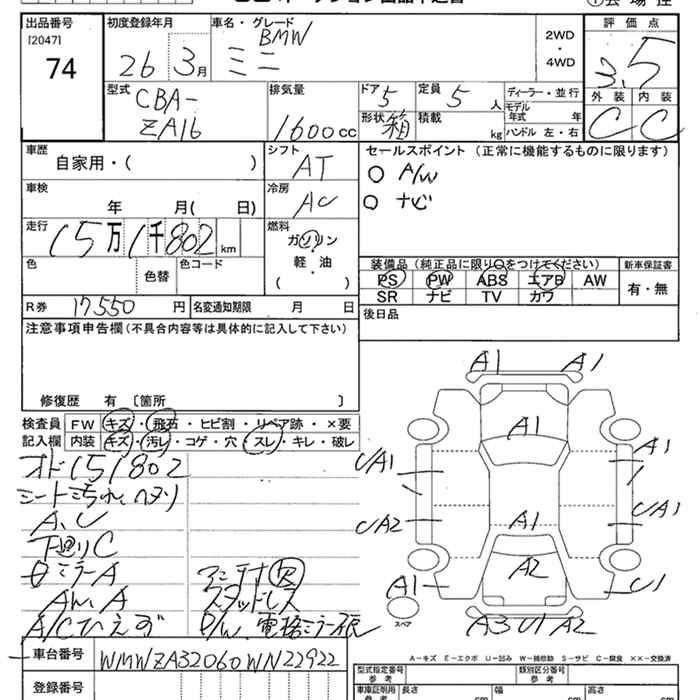 出品番号 初度登録年月 車名・グレード 評価点
[2047]
74
26 3月
BMW
ミニ
2WD
・
4WD
3.5
型式 排気量 ドア 定員 ディーラー・並行 外装 内装
CBA-
ZA16
1600cc
5
5人
モデル年式 年
形状 箱 積載 kg ハンドル 左・右
C C
車歴 シフト セールスポイント (正常に機能するものに限ります)
自家用・( )
AT
○ A/W
○ ナビ
車検 冷房
年 月( 日)
AC
走行 燃料
15万1千802km
ガソリン
軽・油
( )
色 色替 色コード
装備品(純正品に限り○をつけてください) 新車保証書
PS PW ABS エアB AW 有・無
SR ナビ TV カワ
R券 17,550円 名変通知期限 月 日
後日品
注意事項申告欄(不具合内容等は具体的に記入して下さい)
修復歴 有 〔箇所 〕
検査員 FW キズ・飛石・ヒビ割・リペア跡・×要
記入欄 内装 キズ・汚レ・コゲ・穴・スレ・キレ・破レ
オド151802
シート汚れ、ヘタリ
A、C
下廻りC
ミラーA
アンテナ欠
スタッドレス
A/Cひえず
P/W、電格ミラー
A1 A1
A1
UA1 A1
UA2 UA1
A1
A2
A1 U1
スペア
A3 U1 A2
A-キズ E-エクボ U-凹み W-補修跡 S-サビ C-腐食 ××-交換済
車台番号 WMWZA32060WN22922
型式指定番号 参考 類別区分番号 参考
登録番号
車庫証明用 参考 長さ cm 幅 cm 高さ cm